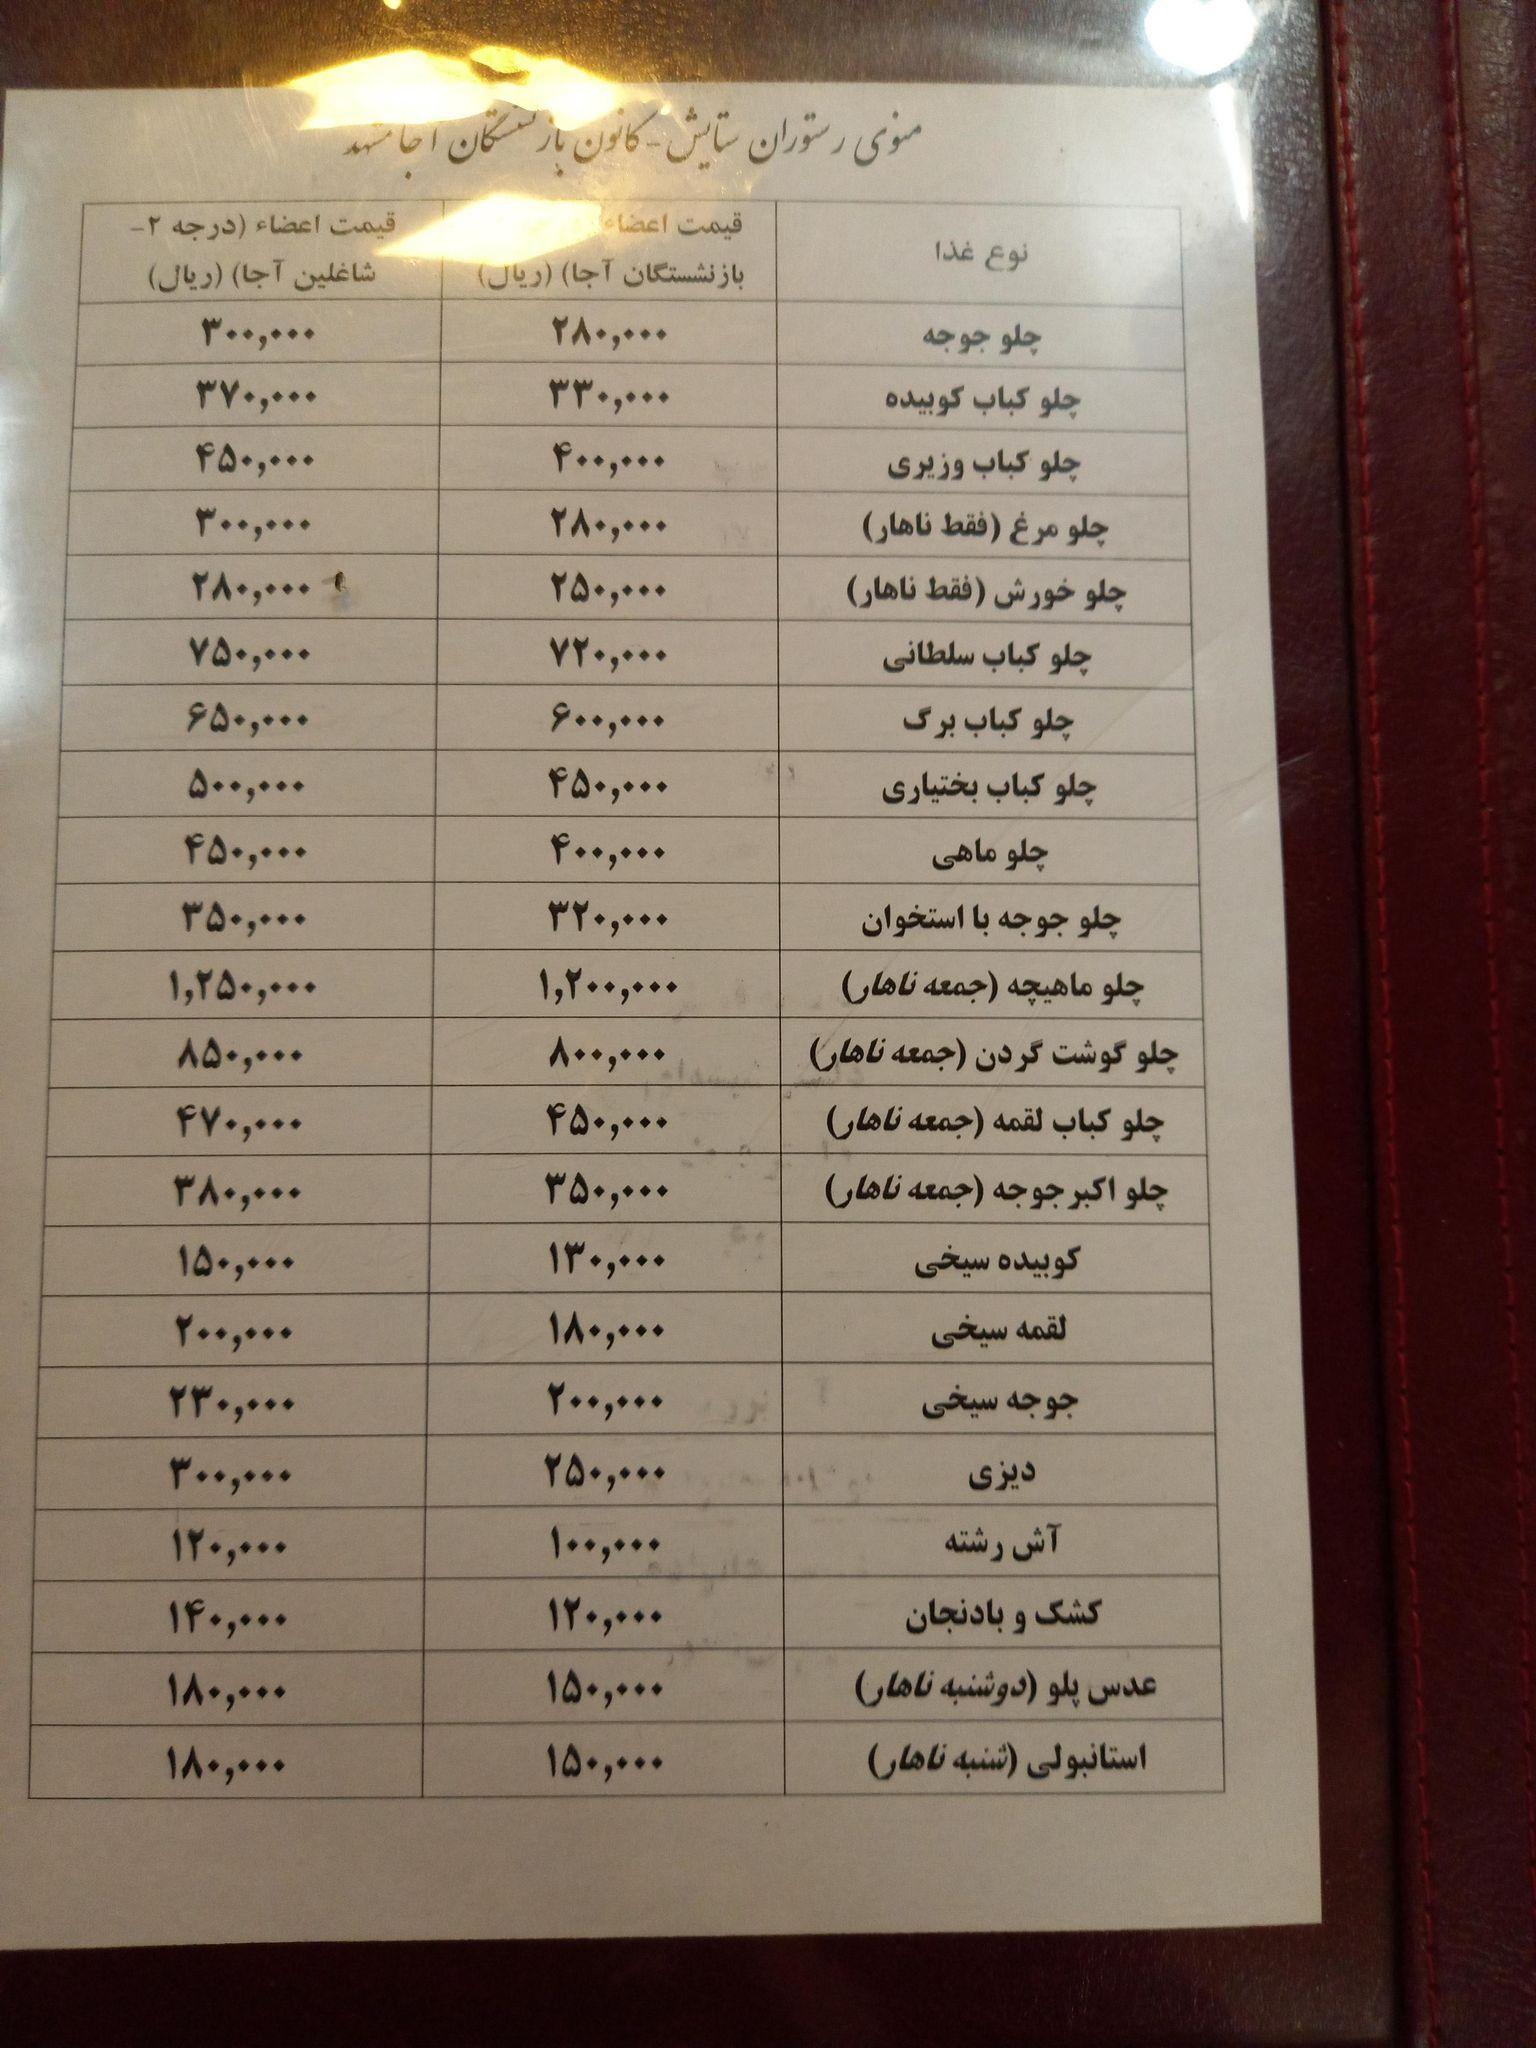 منوی رستوران ستایش - کانون بازنشستگان آجا مشهد
نوع غذا قیمت اعضاء بازنشستگان آجا) (ریال) قیمت اعضاء (درجه ۲- شاغلین آجا) (ریال)
چلو جوجه ۲۸۰,۰۰۰ ۳۰۰,۰۰۰
چلو کباب کوبیده ۳۳۰,۰۰۰ ۳۷۰,۰۰۰
چلو کباب وزیری ۴۰۰,۰۰۰ ۴۵۰,۰۰۰
چلو مرغ (فقط ناهار) ۲۸۰,۰۰۰ ۳۰۰,۰۰۰
چلو خورش (فقط ناهار) ۲۵۰,۰۰۰ ۲۸۰,۰۰۰
چلو کباب سلطانی ۷۲۰,۰۰۰ ۷۵۰,۰۰۰
چلو کباب برگ ۶۰۰,۰۰۰ ۶۵۰,۰۰۰
چلو کباب بختیاری ۴۵۰,۰۰۰ ۵۰۰,۰۰۰
چلو ماهی ۴۰۰,۰۰۰ ۴۵۰,۰۰۰
چلو جوجه با استخوان ۳۲۰,۰۰۰ ۳۵۰,۰۰۰
چلو ماهیچه (جمعه ناهار) ۱,۲۰۰,۰۰۰ ۱,۲۵۰,۰۰۰
چلو گوشت گردن (جمعه ناهار) ۸۰۰,۰۰۰ ۸۵۰,۰۰۰
چلو کباب لقمه (جمعه ناهار) ۴۵۰,۰۰۰ ۴۷۰,۰۰۰
چلو اکبر جوجه (جمعه ناهار) ۳۵۰,۰۰۰ ۳۸۰,۰۰۰
کوبیده سیخی ۱۳۰,۰۰۰ ۱۵۰,۰۰۰
لقمه سیخی ۱۸۰,۰۰۰ ۲۰۰,۰۰۰
جوجه سیخی ۲۰۰,۰۰۰ ۲۳۰,۰۰۰
دیزی ۲۵۰,۰۰۰ ۳۰۰,۰۰۰
آش رشته ۱۰۰,۰۰۰ ۱۲۰,۰۰۰
کشک و بادنجان ۱۲۰,۰۰۰ ۱۴۰,۰۰۰
عدس پلو (دوشنبه ناهار) ۱۵۰,۰۰۰ ۱۸۰,۰۰۰
استانبولی (شنبه ناهار) ۱۵۰,۰۰۰ ۱۸۰,۰۰۰